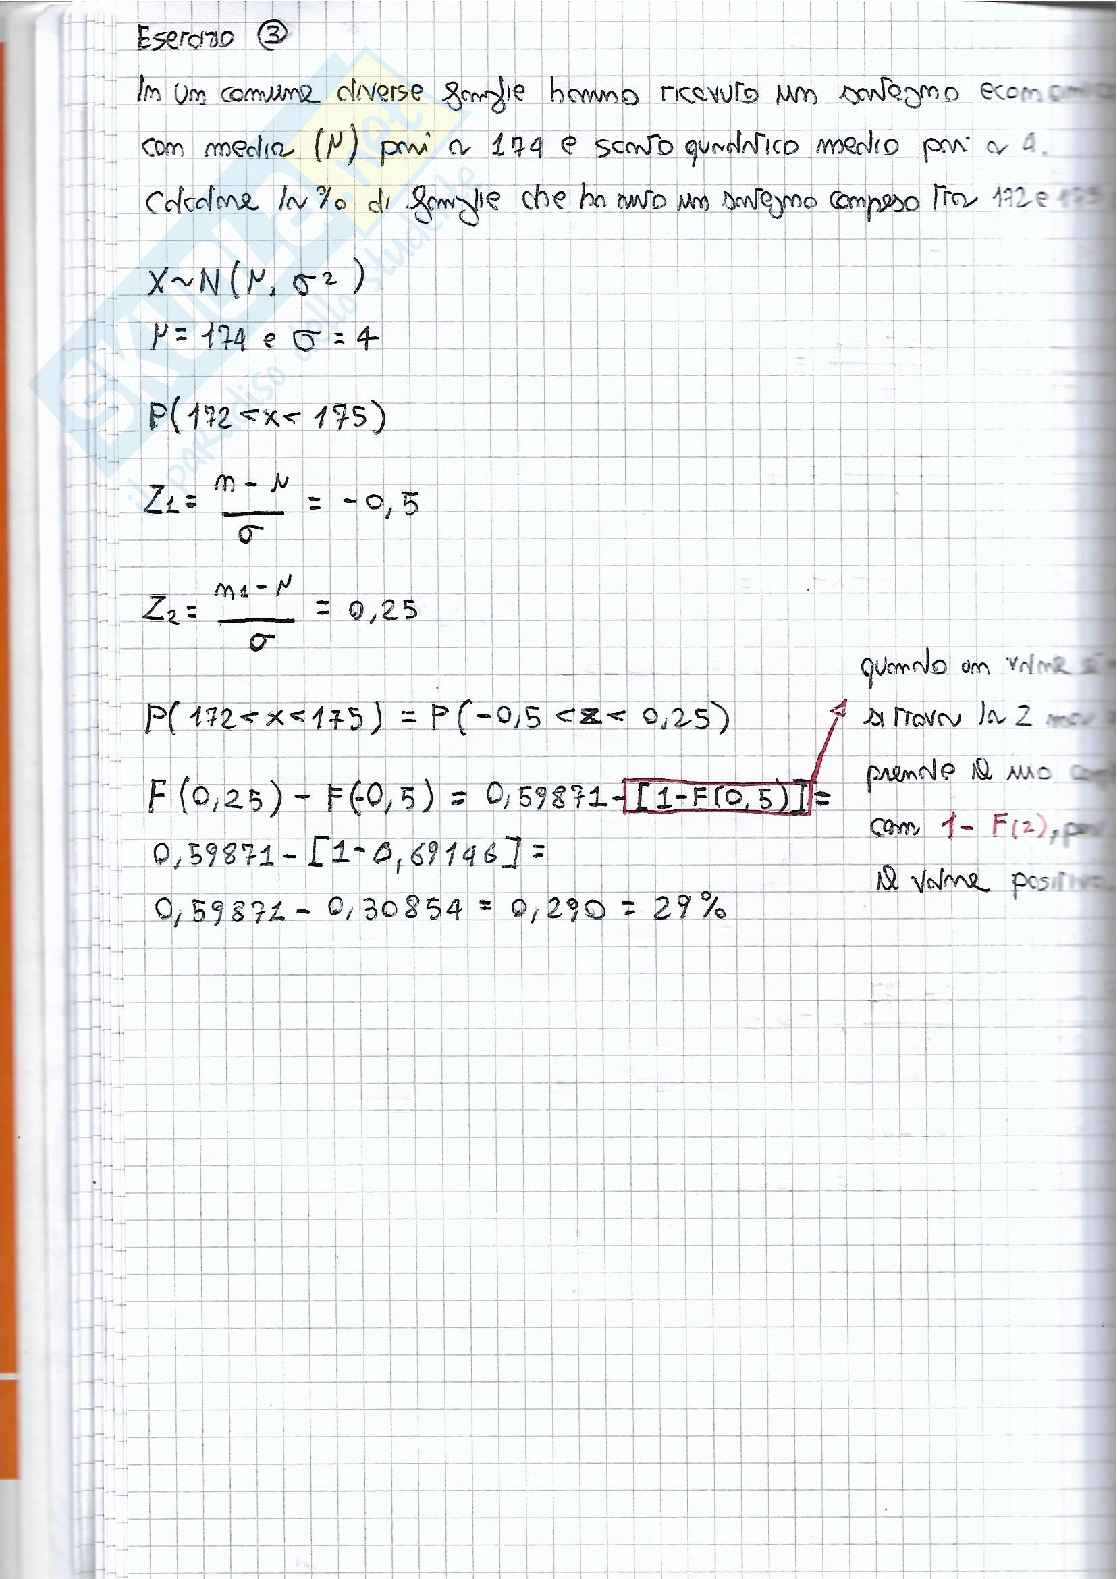 Esercizio ③
In un comune diverse famiglie hanno ricevuto un sostegno econom
com media (μ) pari a 174 e scarto quadratico medio pari a 4.
Calcolare la % di famiglie che ha avuto un sostegno compreso tra 172 e 175
X~N(μ, σ²)
μ = 174 e σ = 4
P(172 < x < 175)
Z1 = n - μ / σ = -0,5
Z2 = n1 - μ / σ = 0,25
P(172 < x < 175) = P(-0,5 < z < 0,25)
F(0,25) - F(-0,5) = 0,59871 - [1 - F(0,5)] =
0,59871 - [1 - 0,69146] =
0,59871 - 0,30854 = 0,290 = 29%
quando un valore
si trova la Z
prende il suo
con 1 - F(Z),
il valore positivo
SKUOLA.net
il paradiso dello studente